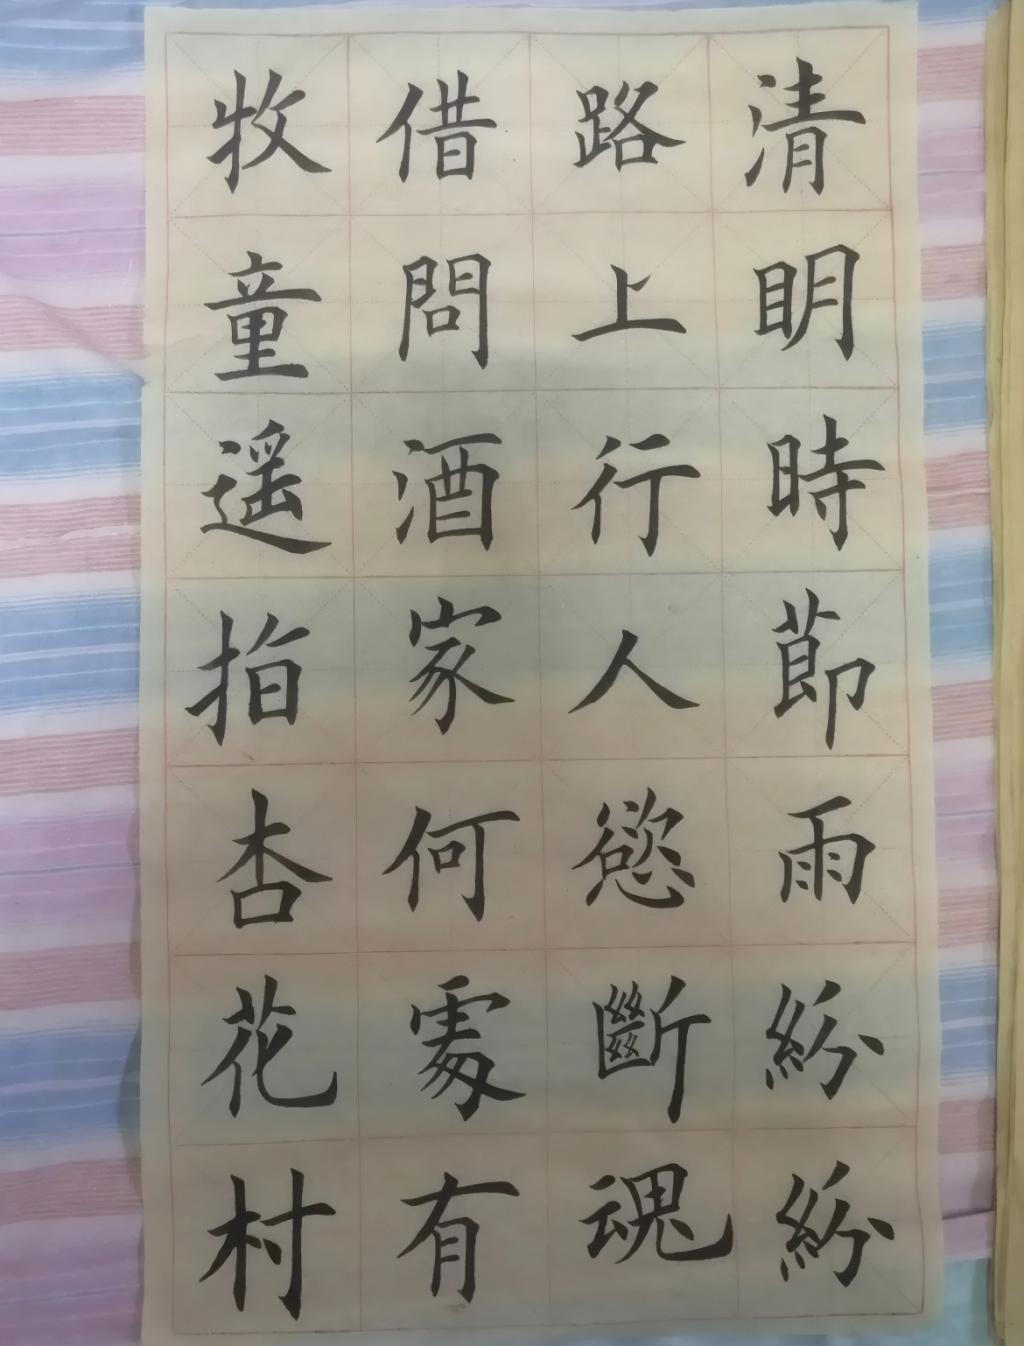 清明時節雨紛紛
路上行人慾斷魂
借問酒家何處有
牧童遥指杏花村